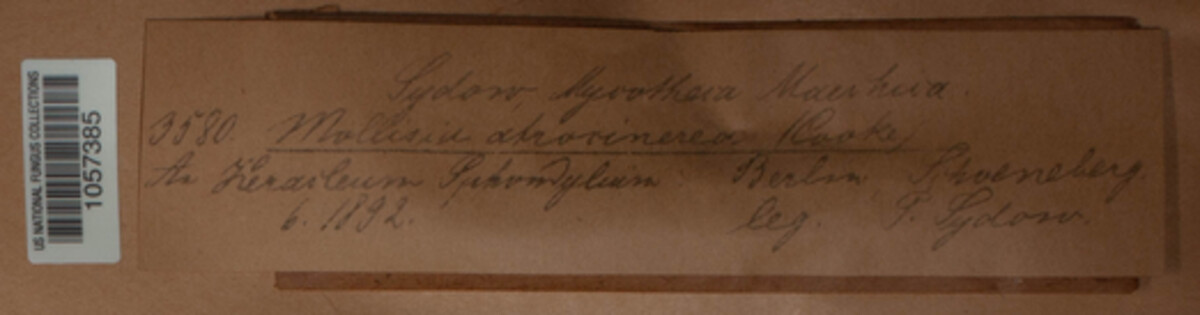 US NATIONAL FUNGUS COLLECTIONS
1057385
Sydow, Mycotheca Marchica.
3580. Mollisia atrocinerea. (Cooke)
An Heracleum Sphondylium Berlin Schoeneberg.
6. 1892. leg. P. Sydow.